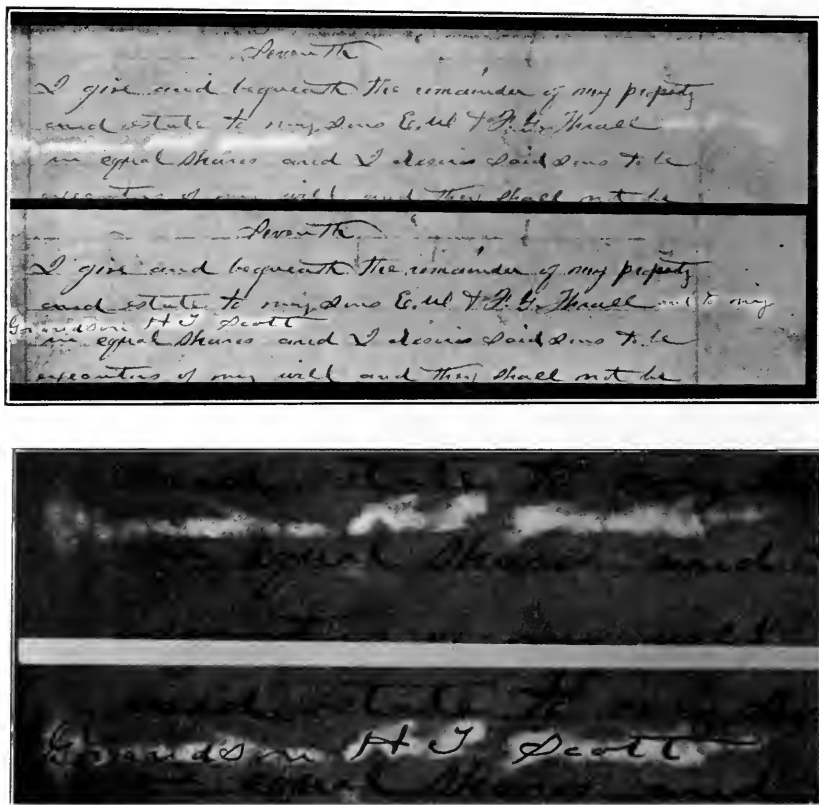 Seventh
I give and bequeath the remainder of my property
and estate to my sons E. W. & F. G. Thrall
in equal shares and I desire said sons to be
executors of my will and they shall not be
Seventh
I give and bequeath the remainder of my property
and estate to my sons E. W. & F. G. Thrall and to my
Grandson H T Scott
in equal shares and I desire said sons to be
executors of my will and they shall not be
and estate to my
equal shares and
and estate to my
Grandson H T Scott
equal shares and